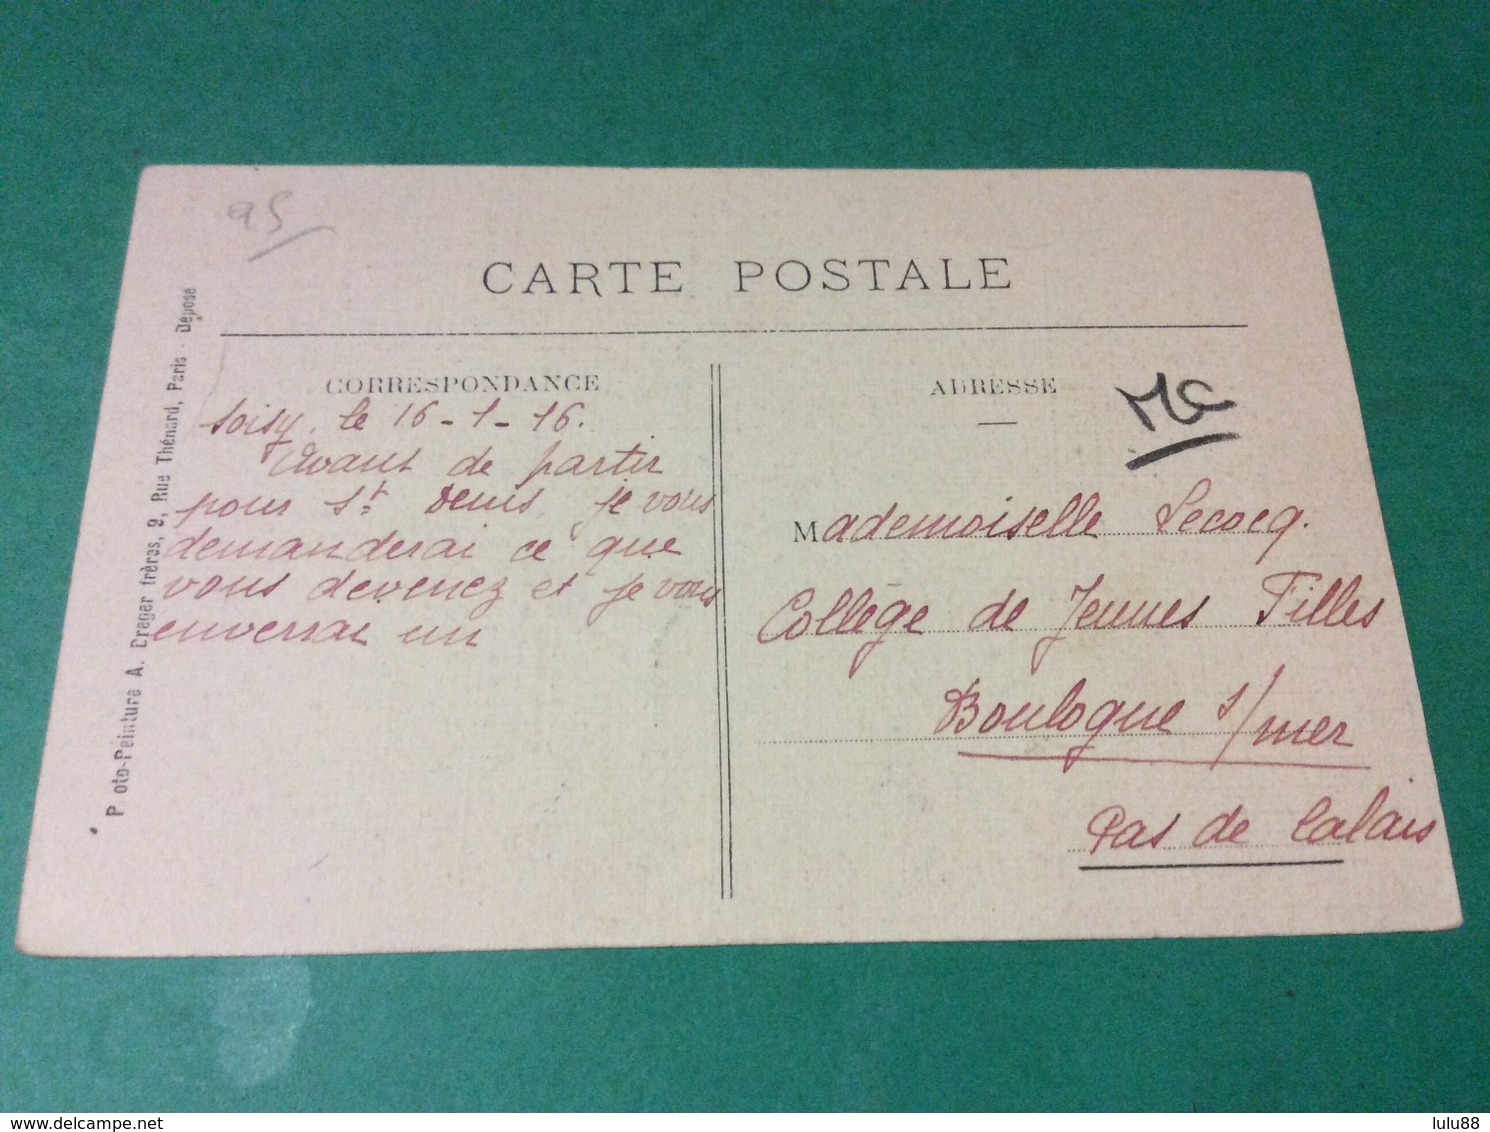 95
CARTE POSTALE
CORRESPONDANCE
Soisy, le 16-1-16.
Avant de partir
pour St Denis, je vous
demanderai ce que
vous devenez et je vous
enverrai un
ADRESSE
Mademoiselle Lecocq.
Collège de Jeunes Filles
Boulogne s/mer
Pas de Calais
P oto-Peinture A. Dreger frères, 9, Rue Thénard, Paris - Déposé
www.delcampe.net
lulu88